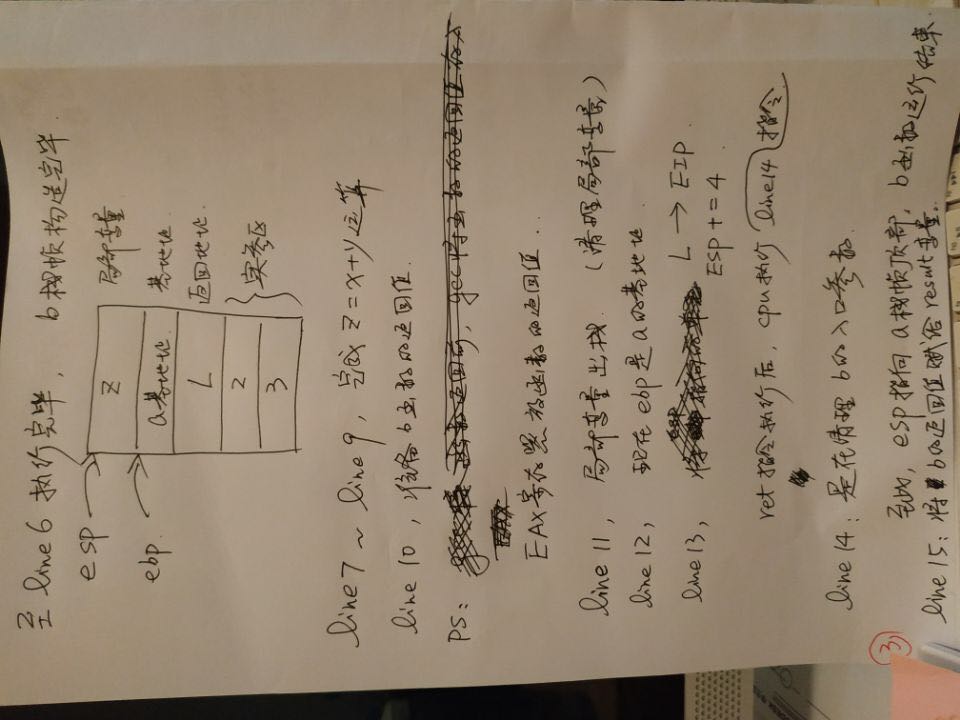 至 line 6 执行完毕, b栈帧构造完毕.
esp
z 局部变量
ebp.
a基地址. 基地址.
L 返回地址.
2
实参区
3
line 7 ~ line 9, 完成 z = x+y 运算
line 10, 准备b函数的返回值.
PS: 函数返回前, gcc将函数的返回值存入
EAX
EAX寄存器放函数的返回值..
line 11, 局部变量出栈. (清理局部变量)
line 12, 现在ebp是a的基地址.
line 13, L → EIP.
ESP += 4
ret 指令执行后, cpu执行 line14 指令.
line 14: 是在清理b的入口参数.
③ 至此, esp指向a栈帧顶部, b函数运行结束.
line 15: 将b的返回值赋给result变量.